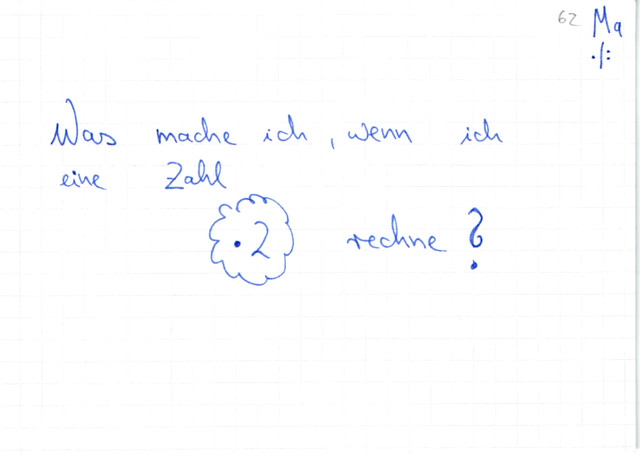 62 Ma
·/:
Was mache ich, wenn ich
eine Zahl
·2 rechne?